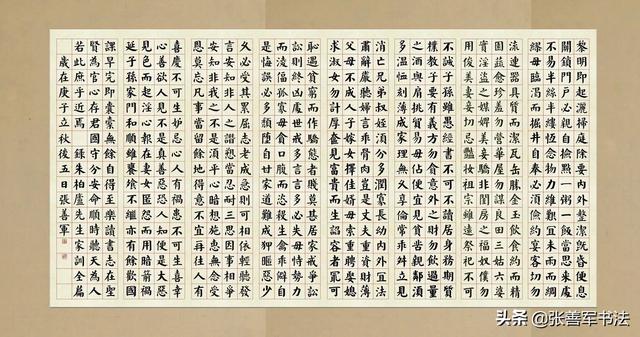 黎明即起灑掃庭除要內外整潔既昏便息
關鎖門戶必親自檢點一粥一飯當思來處
不易半絲半縷恆念物力維艱宜未雨而綢
繆毋臨渴而掘井自奉必須儉約宴客切勿
流連器具質而潔瓦缶勝金玉飲食約而精
園蔬愈珍羞勿營華屋勿謀良田三姑六婆
實淫盜之媒婢美妾嬌非閨房之福奴僕勿
用俊美妻妾切忌豔妝祖宗雖遠祭祀不可
不誠子孫雖愚經書不可不讀居身務期質
樸教子要有義方勿貪意外之財勿飲過量
之酒與肩挑貿易毋佔便宜見貧苦親鄰須
多溫恤刻薄成家理無久享倫常乖舛立見
消亡兄弟叔姪須分多潤寡長幼內外宜法
肅辭嚴聽婦言乖骨肉豈是丈夫重資財薄
父母不成人子嫁女擇佳婿毋索重聘娶媳
求淑女勿計厚奩見富貴而生諂容者最可
恥遇貧窮而作驕態者賤莫甚居家戒爭訟
訟則終凶處世戒多言言多必失毋恃勢力
而淩偪孤寡毋貪口腹而恣殺生禽乖僻自
是悔誤必多頹墮自甘家道難成狎暱惡少
久必受其累屈志老成急則可相依輕聽發
言安知非人之譖愬當忍耐三思因事相爭
安知非我之不是須平心暗想施惠無念受
恩莫忘凡事當留餘地得意不宜再往人有
喜慶不可生妒忌心人有禍患不可生喜幸
心善欲人見不是真善惡恐人知便是大惡
見色而起淫心報在妻女匿怨而用暗箭禍
延子孫家門和順雖饔飧不繼亦有餘歡國
課早完即囊橐無餘自得至樂讀書志在聖
賢為官心存君國守分安命順時聽天為人
若此庶乎近焉 錄朱柏廬先生家訓全篇
歲在庚子立秋後五日張善軍
头条 @张善军书法